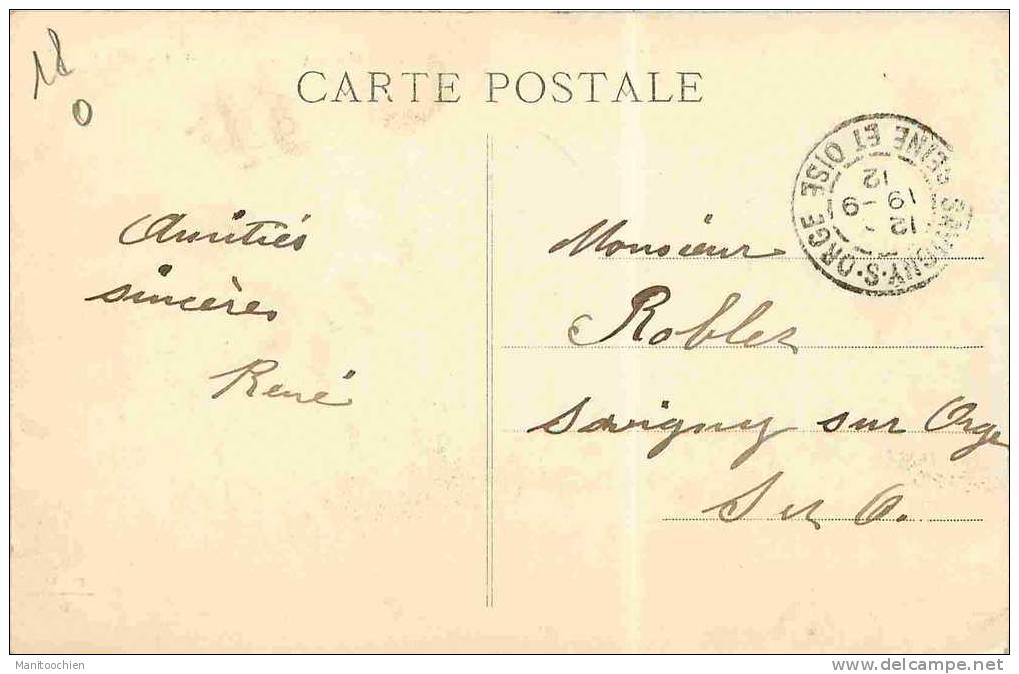 18
0
CARTE POSTALE
SAVIGNY-S-ORGE
SEINE ET OISE
12
19 -9
12
Amitiés
sincères
René
Monsieur
Robles
Savigny sur Orge
S et O.
Manitoochien
delcampe.net